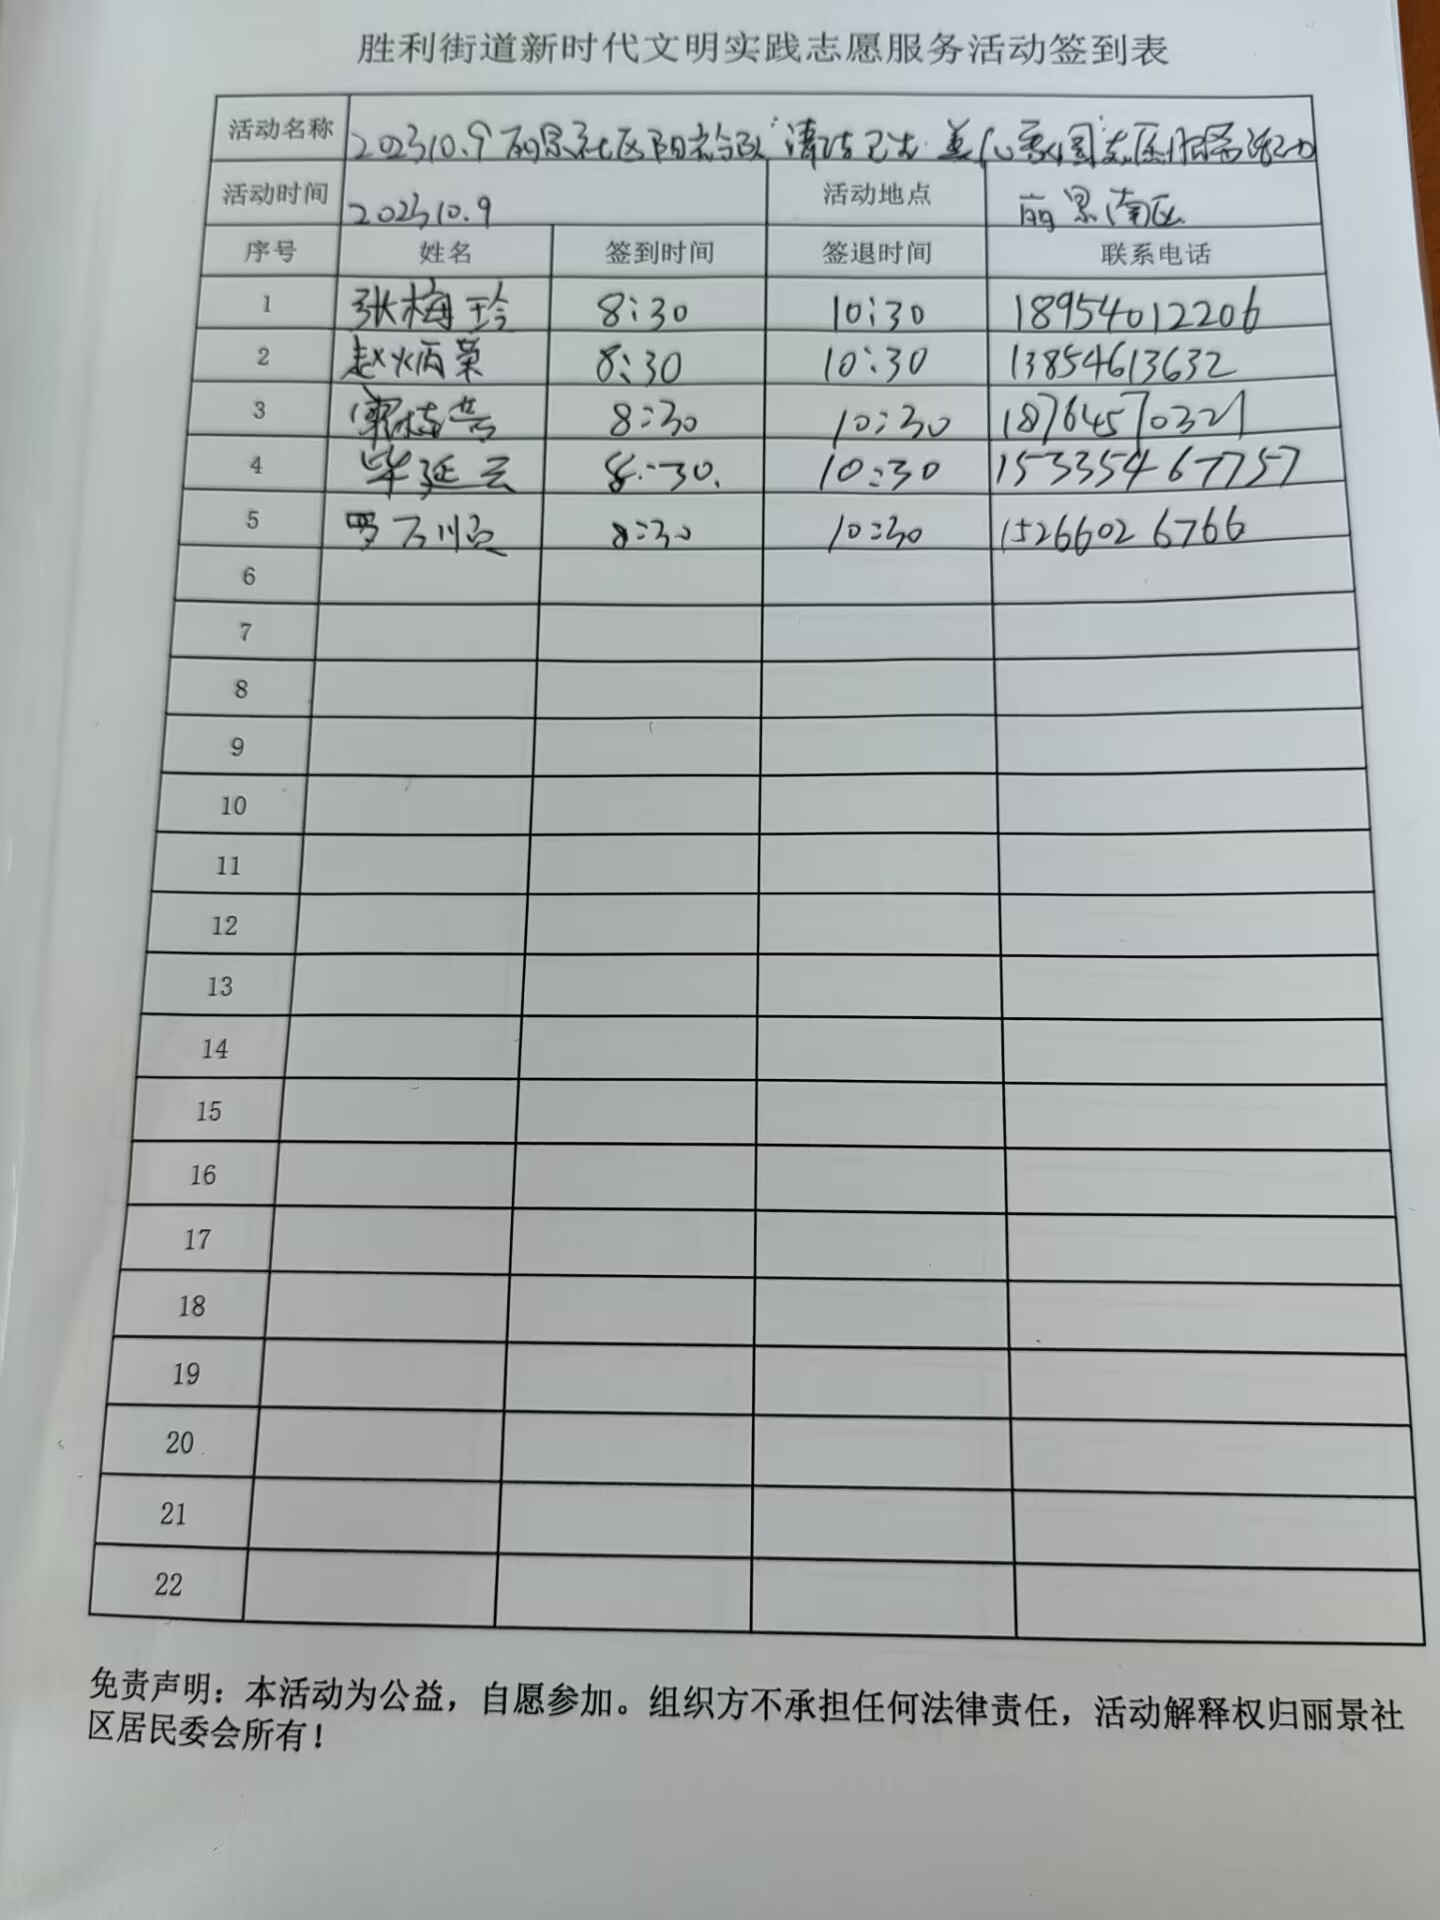 胜利街道新时代文明实践志愿服务活动签到表
活动名称 2023.10.9丽景社区阳光台队“清洁卫生·美化家园”志愿服务活动
活动时间 2023.10.9 活动地点 丽景南区
序号 姓名 签到时间 签退时间 联系电话
1 张梅玲 8:30 10:30 18954012206
2 赵炳荣 8:30 10:30 13854613632
3 8:30 10:30 18764570321
4 毕延云 8:30 10:30 15335467757
5 罗万 8:30 10:30 15266026766
6
7
8
9
10
11
12
13
14
15
16
17
18
19
20
21
22
免责声明：本活动为公益，自愿参加。组织方不承担任何法律责任，活动解释权归丽景社
区居民委会所有！